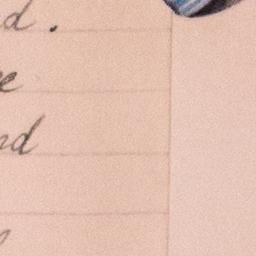 d.
e
nd